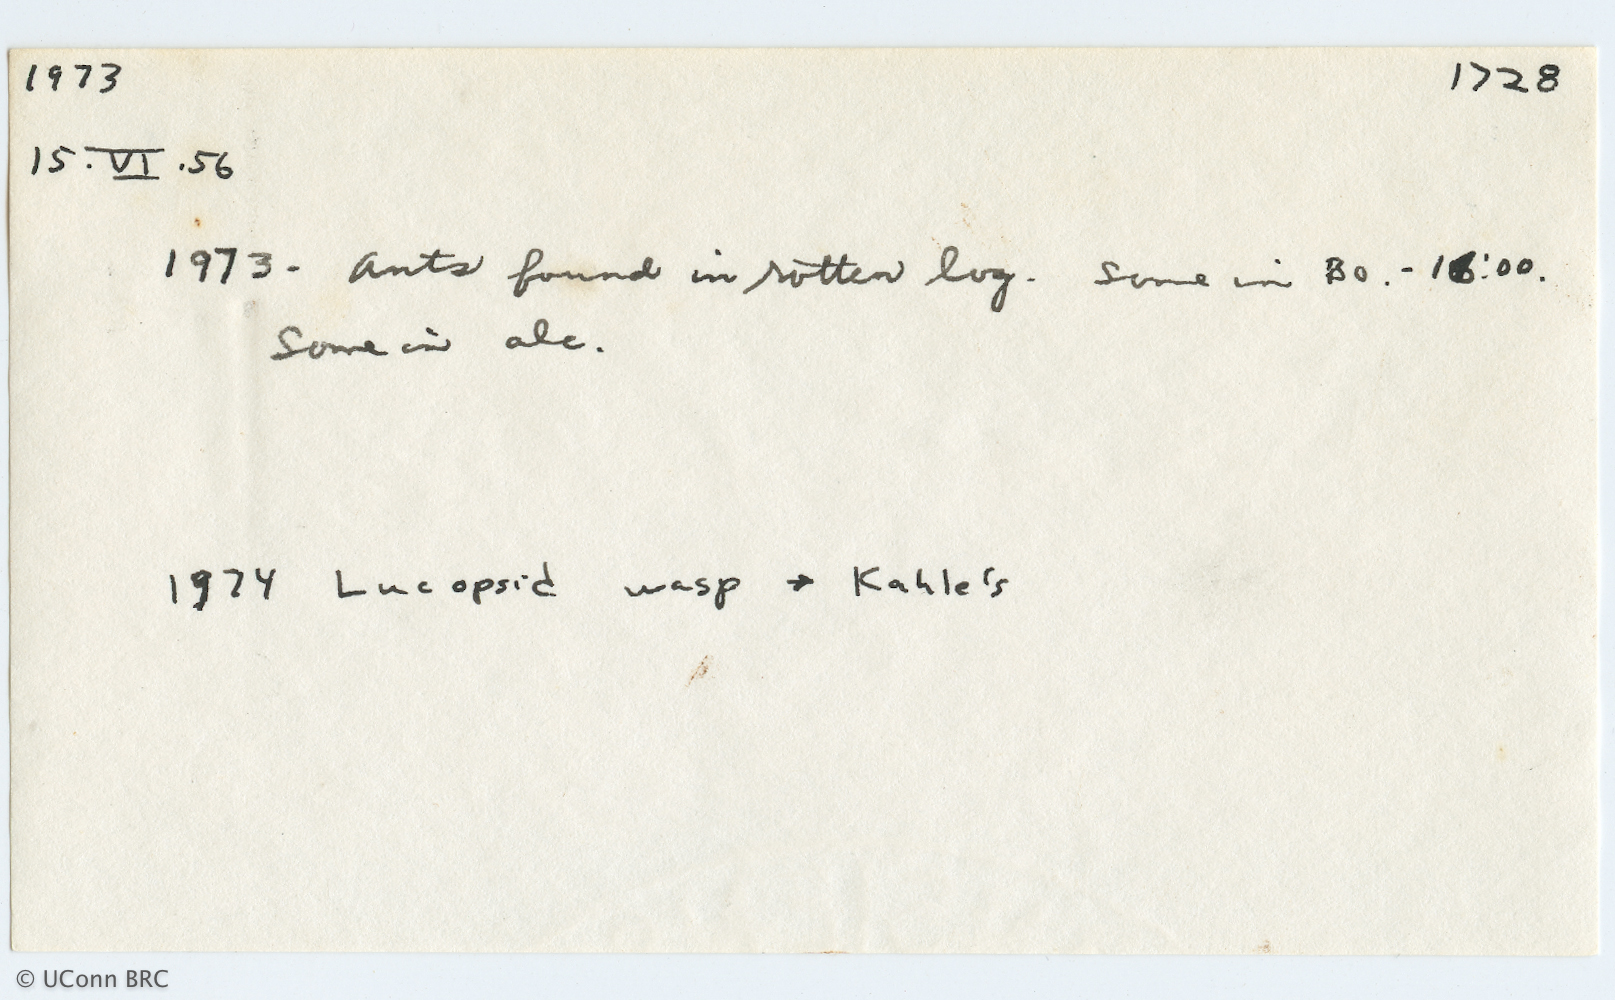 1973 1728
15.VI.56
1973- Ants found in rotten log. Some in Bo.-16:00.
Some in alc.
1974 Lucopsid wasp → Kahle's
© UConn BRC